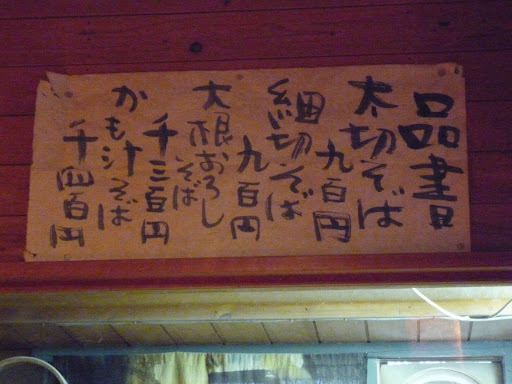 品書
太切そば
九百円
細切そば
九百円
大根おろし
そば
千三百円
かも汁そば
千四百円